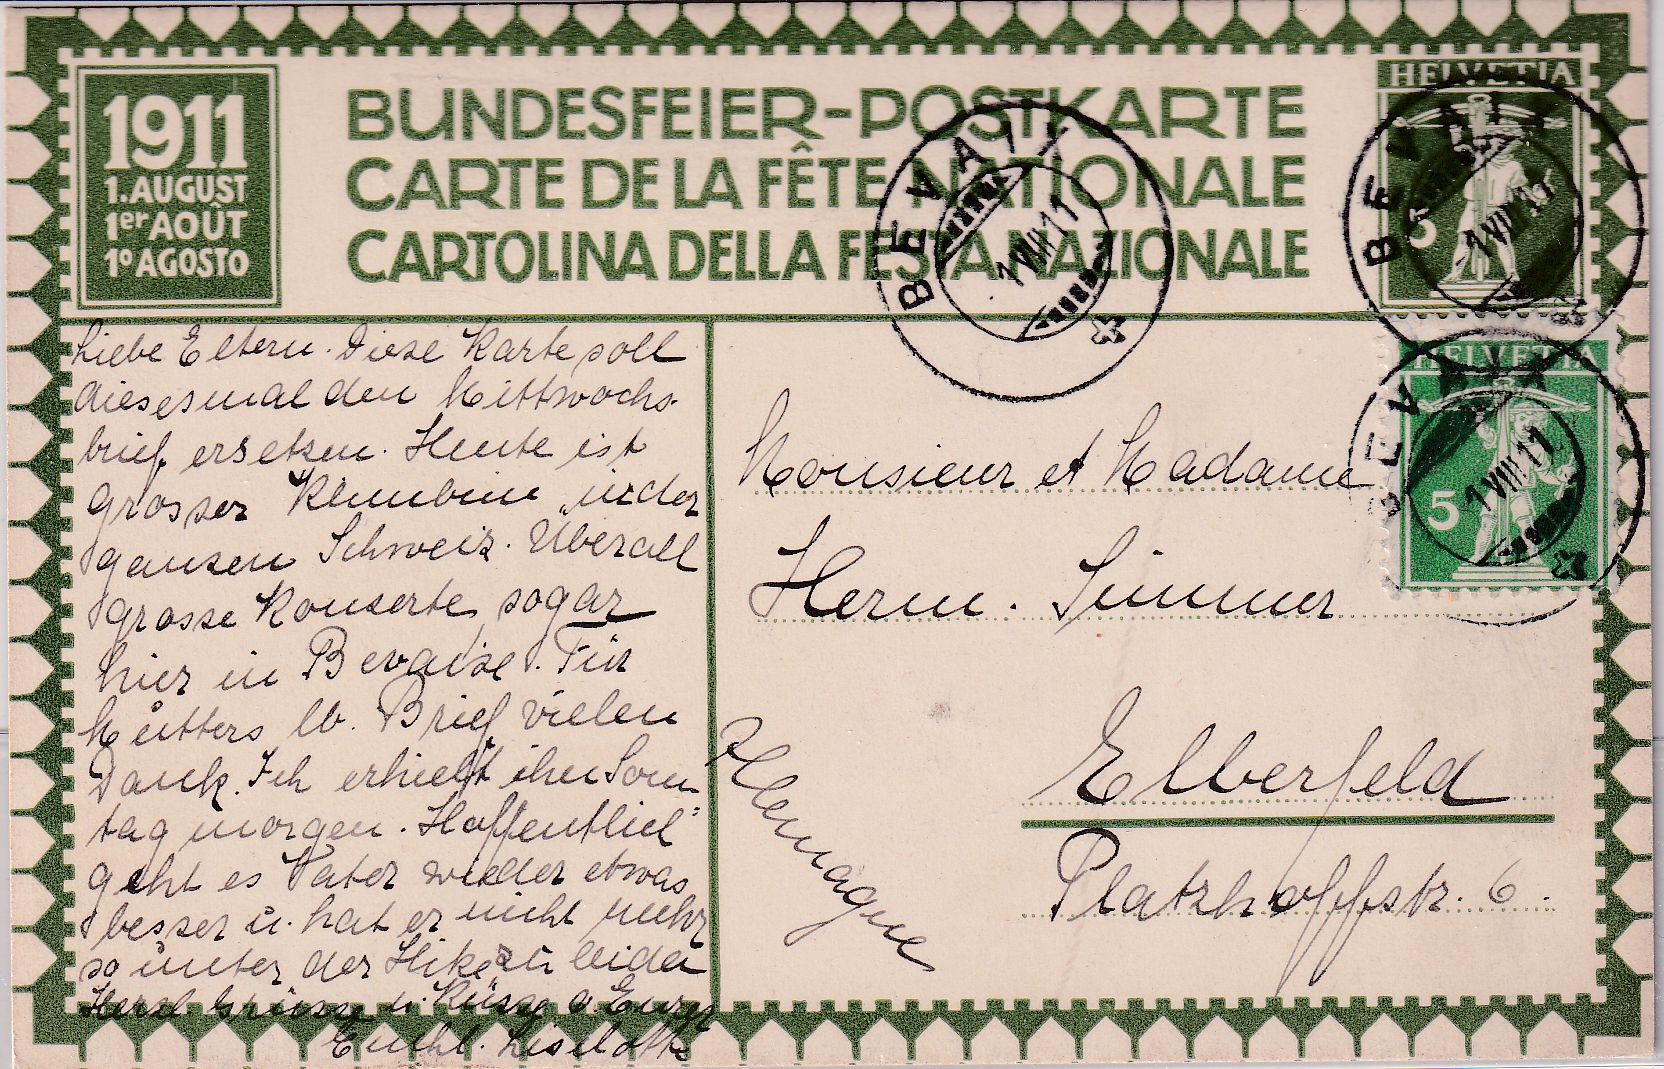 1911
1. AUGUST
1er AOÛT
1º AGOSTO
BUNDESFEIER-POSTKARTE
CARTE DE LA FÊTE NATIONALE
CARTOLINA DELLA FESTA NAZIONALE
BEVAIX
1 VIII 11
HELVETIA
BEVAIX
1 VIII 11
HELVETIA
5
BEVAIX
1 VIII 11
Liebe Eltern. Diese Karte soll
diesesmal den Mittwochs-
brief ersetzen. Heute ist
grosser in der
ganzen Schweiz. Überall
grosse Konzerte, sogar
hier in Bevaix. Für
Mutters lb. Brief vielen
Dank. Ich erhielt ihn Sonn-
tag morgen. Hoffentlich
geht es Vater wieder etwas
besser u. hat er nicht mehr
so unter der Hitze zu leiden
Herzl. Grüsse u. Küsse v. Eurer
Liselotte
Monsieur et Madame
Herm. Simmer
Elberfeld
Platzhoffstr. 6.
Allemagne